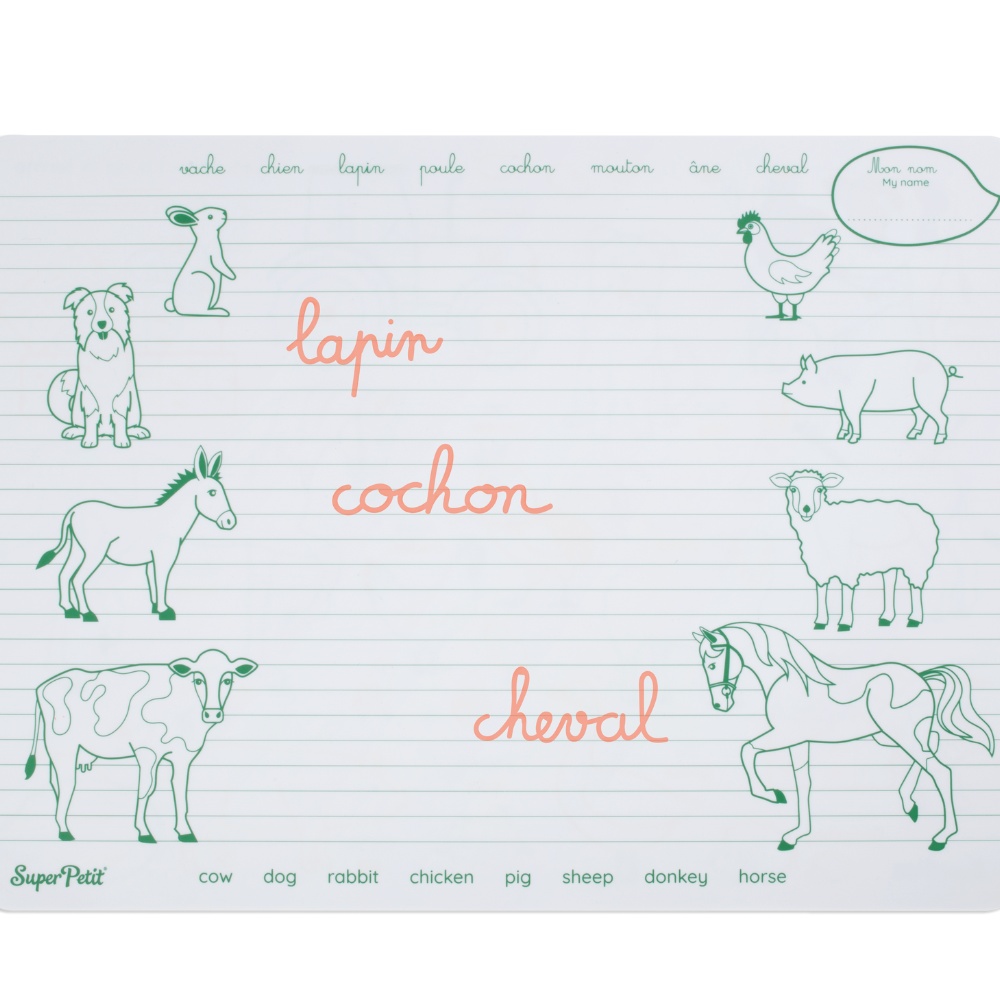 vache chien lapin poule cochon mouton âne cheval
Mon nom
My name
lapin
cochon
cheval
SuperPetit
cow dog rabbit chicken pig sheep donkey horse